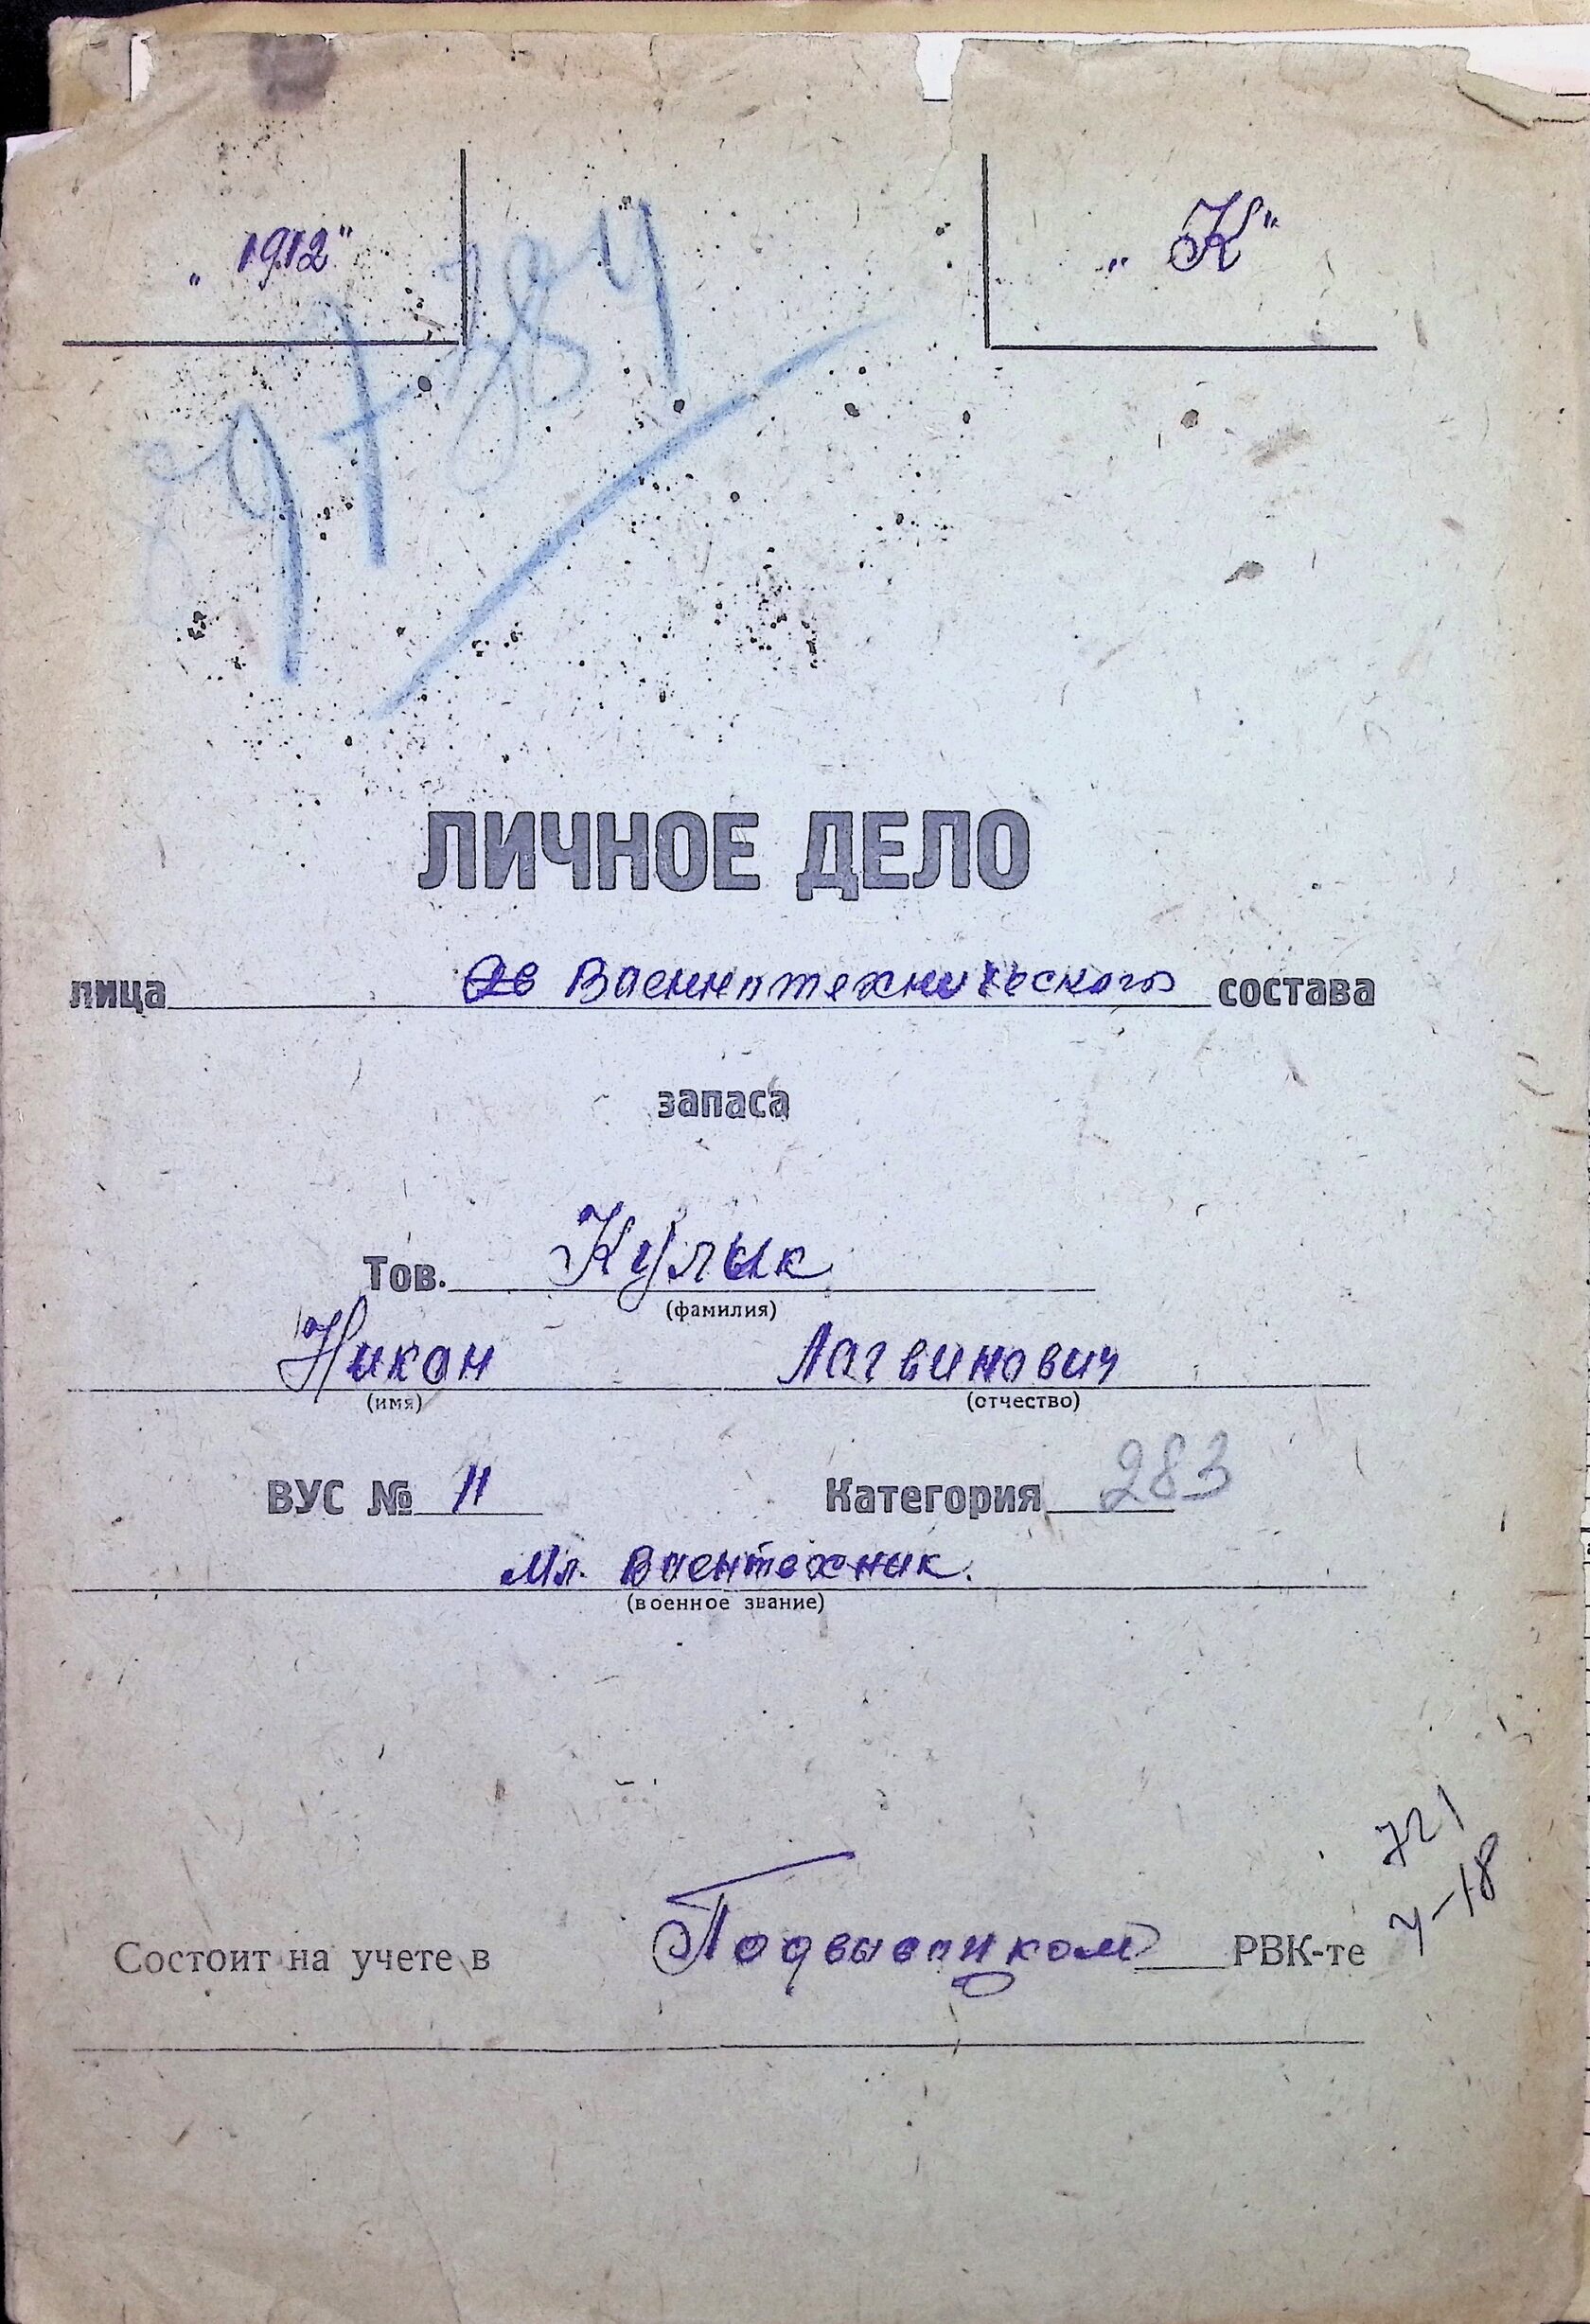 „1912“ „К“
97384
ЛИЧНОЕ ДЕЛО
лица Военнотехнического состава
запаса
Тов. Кулык
(фамилия)
Никон Лагвинович
(имя) (отчество)
ВУС № 11 Категория 283
Мл. Воентехник.
(военное звание)
721
4-18
Состоит на учете в Подвысоцком РВК-те